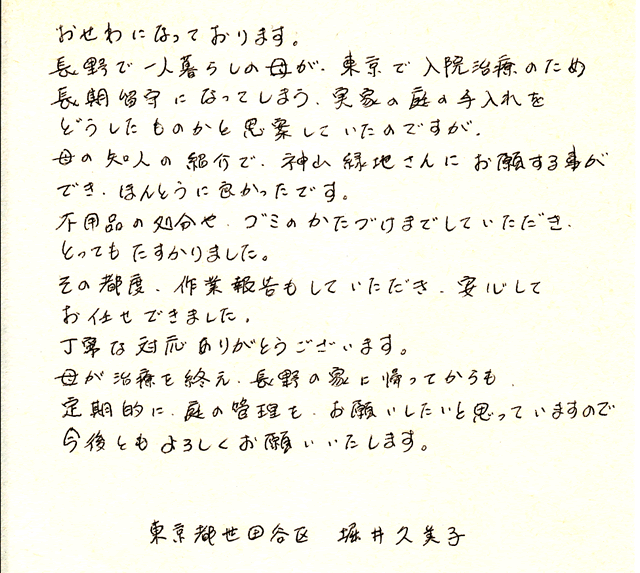 おせわになっております。
長野で一人暮らしの母が、東京で入院治療のため
長期留守になってしまう、実家の庭の手入れを
どうしたものかと思案していたのですが、
母の知人の紹介で、神山緑地さんにお願する事が
でき、ほんとうに良かったです。
不用品の処分や、ゴミのかたづけまでしていただき、
とってもたすかりました。
その都度、作業報告もしていただき、安心して
お任せできました。
丁寧な対応ありがとうございます。
母が治療を終え、長野の家に帰ってからも、
定期的に、庭の管理を、お願いしたいと思っていますので
今後ともよろしくお願いいたします。
東京都世田谷区 堀井久美子